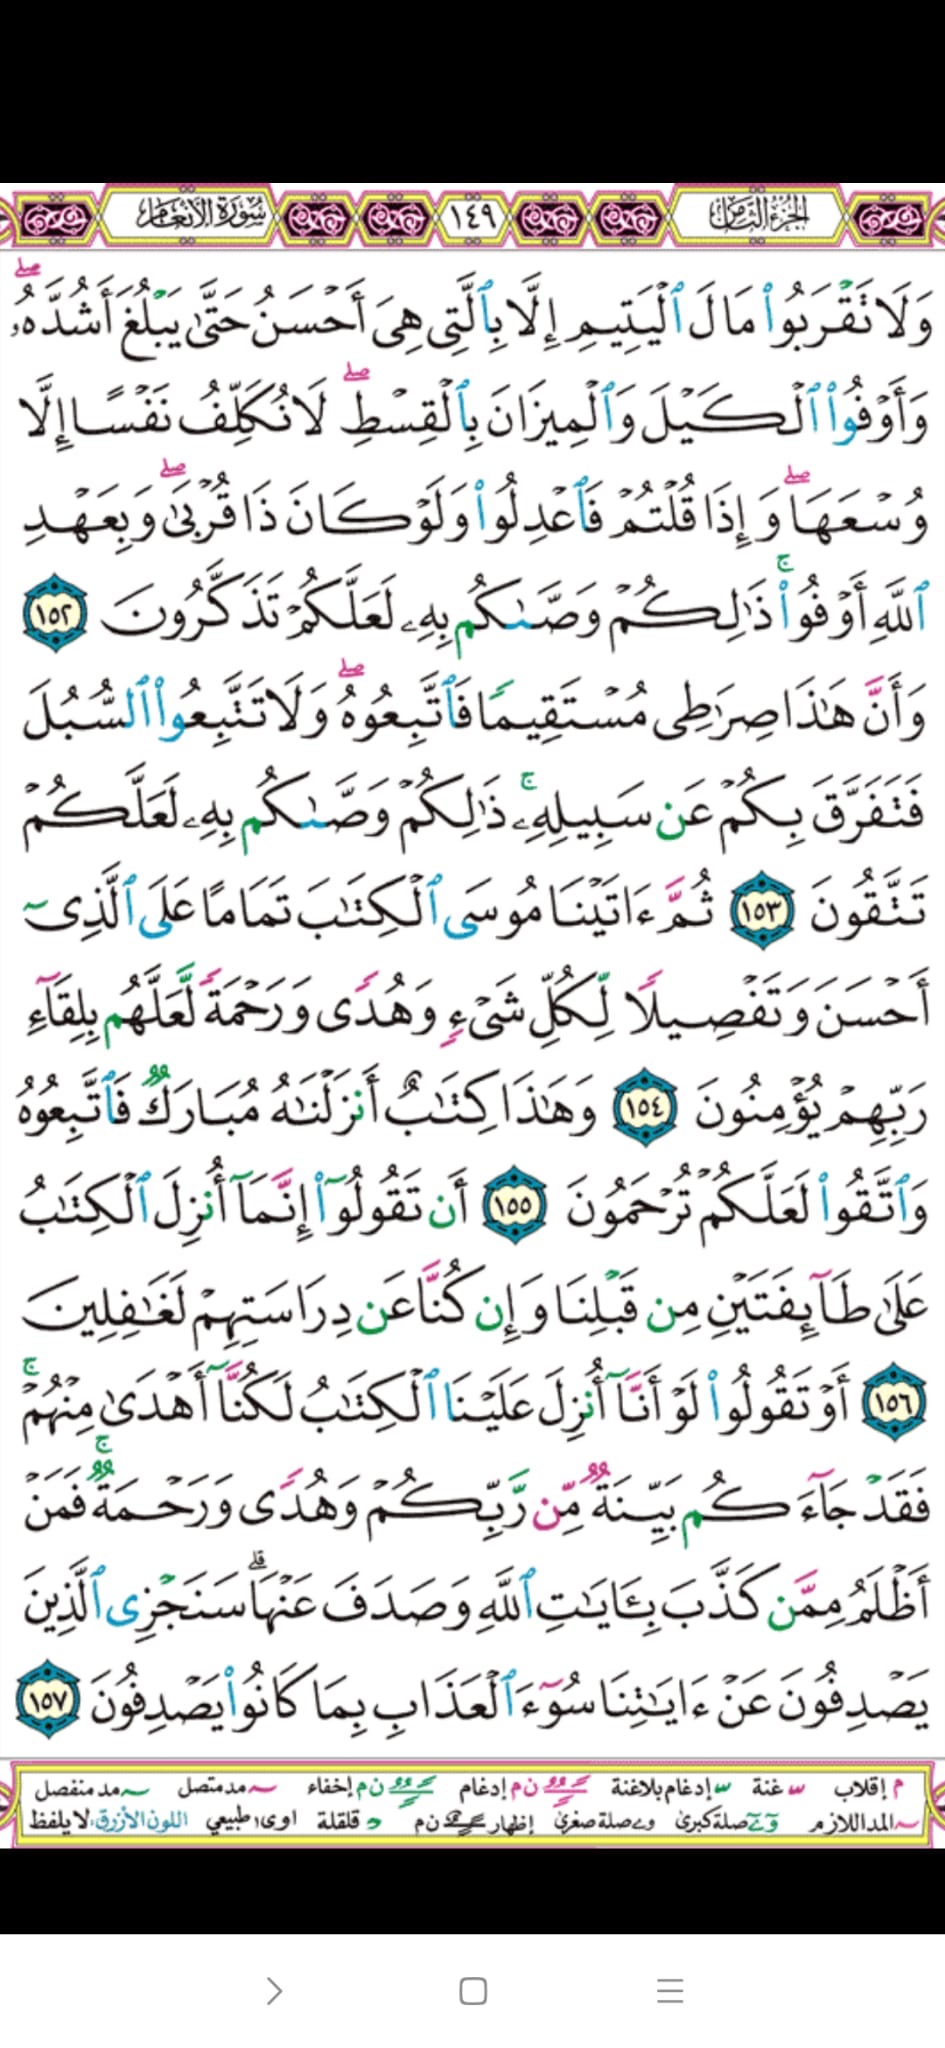 الجزء الثامن
١٤٩
سورة الأنعام
وَلَا تَقْرَبُوا۟ مَالَ ٱلْيَتِيمِ إِلَّا بِٱلَّتِى هِىَ أَحْسَنُ حَتَّىٰ يَبْلُغَ أَشُدَّهُۥ ۖ
وَأَوْفُوا۟ ٱلْكَيْلَ وَٱلْمِيزَانَ بِٱلْقِسْطِ ۖ لَا نُكَلِّفُ نَفْسًا إِلَّا
وُسْعَهَا ۖ وَإِذَا قُلْتُمْ فَٱعْدِلُوا۟ وَلَوْ كَانَ ذَا قُرْبَىٰ ۖ وَبِعَهْدِ
ٱللَّهِ أَوْفُوا۟ ۚ ذَٰلِكُمْ وَصَّىٰكُم بِهِۦ لَعَلَّكُمْ تَذَكَّرُونَ ١٥٢
وَأَنَّ هَٰذَا صِرَٰطِى مُسْتَقِيمًا فَٱتَّبِعُوهُ ۖ وَلَا تَتَّبِعُوا۟ ٱلسُّبُلَ
فَتَفَرَّقَ بِكُمْ عَن سَبِيلِهِۦ ۚ ذَٰلِكُمْ وَصَّىٰكُم بِهِۦ لَعَلَّكُمْ
تَتَّقُونَ ١٥٣ ثُمَّ ءَاتَيْنَا مُوسَى ٱلْكِتَٰبَ تَمَامًا عَلَى ٱلَّذِىٓ
أَحْسَنَ وَتَفْصِيلًا لِّكُلِّ شَىْءٍ وَهُدًى وَرَحْمَةً لَّعَلَّهُم بِلِقَآءِ
رَبِّهِمْ يُؤْمِنُونَ ١٥٤ وَهَٰذَا كِتَٰبٌ أَنزَلْنَٰهُ مُبَارَكٌ فَٱتَّبِعُوهُ
وَٱتَّقُوا۟ لَعَلَّكُمْ تُرْحَمُونَ ١٥٥ أَن تَقُولُوٓا۟ إِنَّمَآ أُنزِلَ ٱلْكِتَٰبُ
عَلَىٰ طَآئِفَتَيْنِ مِن قَبْلِنَا وَإِن كُنَّا عَن دِرَاسَتِهِمْ لَغَٰفِلِينَ
١٥٦ أَوْ تَقُولُوا۟ لَوْ أَنَّآ أُنزِلَ عَلَيْنَا ٱلْكِتَٰبُ لَكُنَّآ أَهْدَىٰ مِنْهُمْ ۚ
فَقَدْ جَآءَكُم بَيِّنَةٌ مِّن رَّبِّكُمْ وَهُدًى وَرَحْمَةٌ ۚ فَمَنْ
أَظْلَمُ مِمَّن كَذَّبَ بِـَٔايَٰتِ ٱللَّهِ وَصَدَفَ عَنْهَا ۗ سَنَجْزِى ٱلَّذِينَ
يَصْدِفُونَ عَنْ ءَايَٰتِنَا سُوٓءَ ٱلْعَذَابِ بِمَا كَانُوا۟ يَصْدِفُونَ ١٥٧
م إقلاب غنة إدغام بلاغنة ن م إدغام ن م إخفاء مد متصل مد منفصل
المد اللازم صلة كبرى صلة صغرى إظهار ن م قلقلة اوى طبيعي اللون الأزرق: لا يلفظ